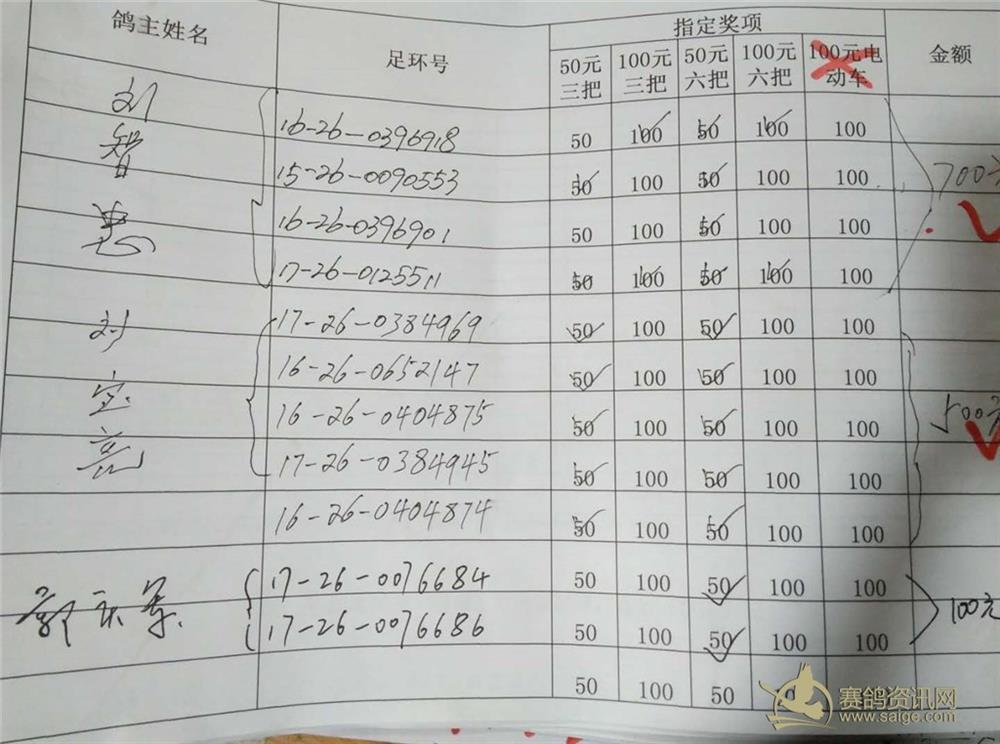 指定奖项
鸽主姓名 足环号 50元三把 100元三把 50元六把 100元六把 100元电动车 金额
刘智惠 16-26-0396918 50 100 50 100 100 700元
15-26-0090553 50 100 50 100 100
16-26-0396901 50 100 50 100 100
17-26-0125511 50 100 50 100 100
刘宝亮 17-26-0384969 50 100 50 100 100 500元
16-26-0652147 50 100 50 100 100
16-26-0404875 50 100 50 100 100
17-26-0384945 50 100 50 100 100
16-26-0404874 50 100 50 100 100
17-26-0076684 50 100 50 100 100 100元
17-26-0076686 50 100 50 100 100
50 100 50
赛鸽资讯网
www.saige.com